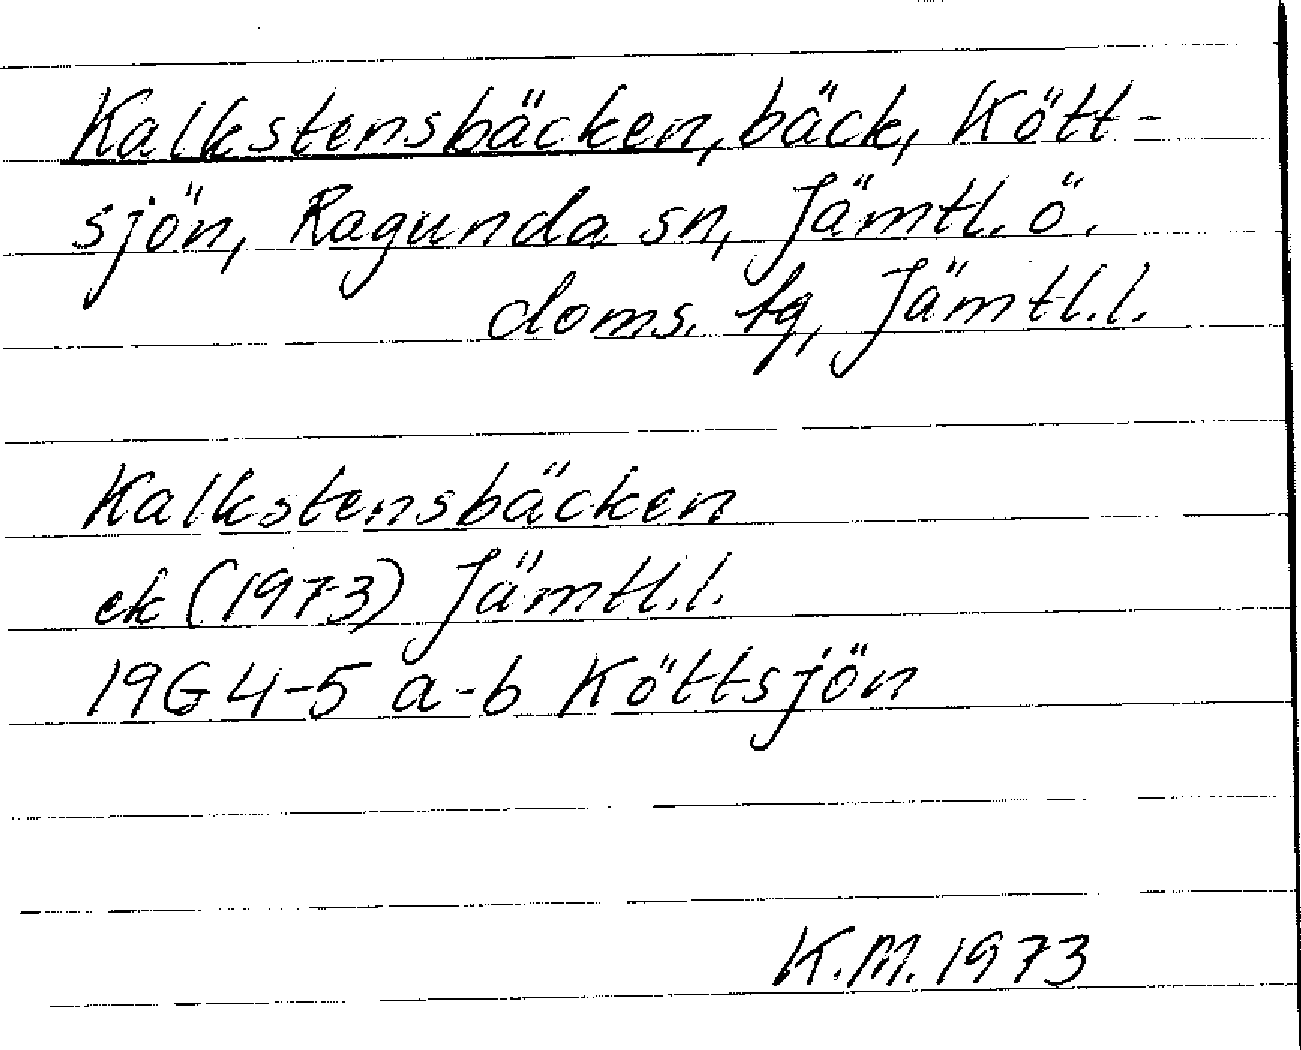 Kalkstensbäcken, bäck, Kött-
sjön, Ragunda sn, Jämtl. ö.
doms. tg, Jämtl.l.
Kalkstensbäcken
ek (1973) Jämtl.l.
19G 4-5 a-b Köttsjön
K.M. 1973